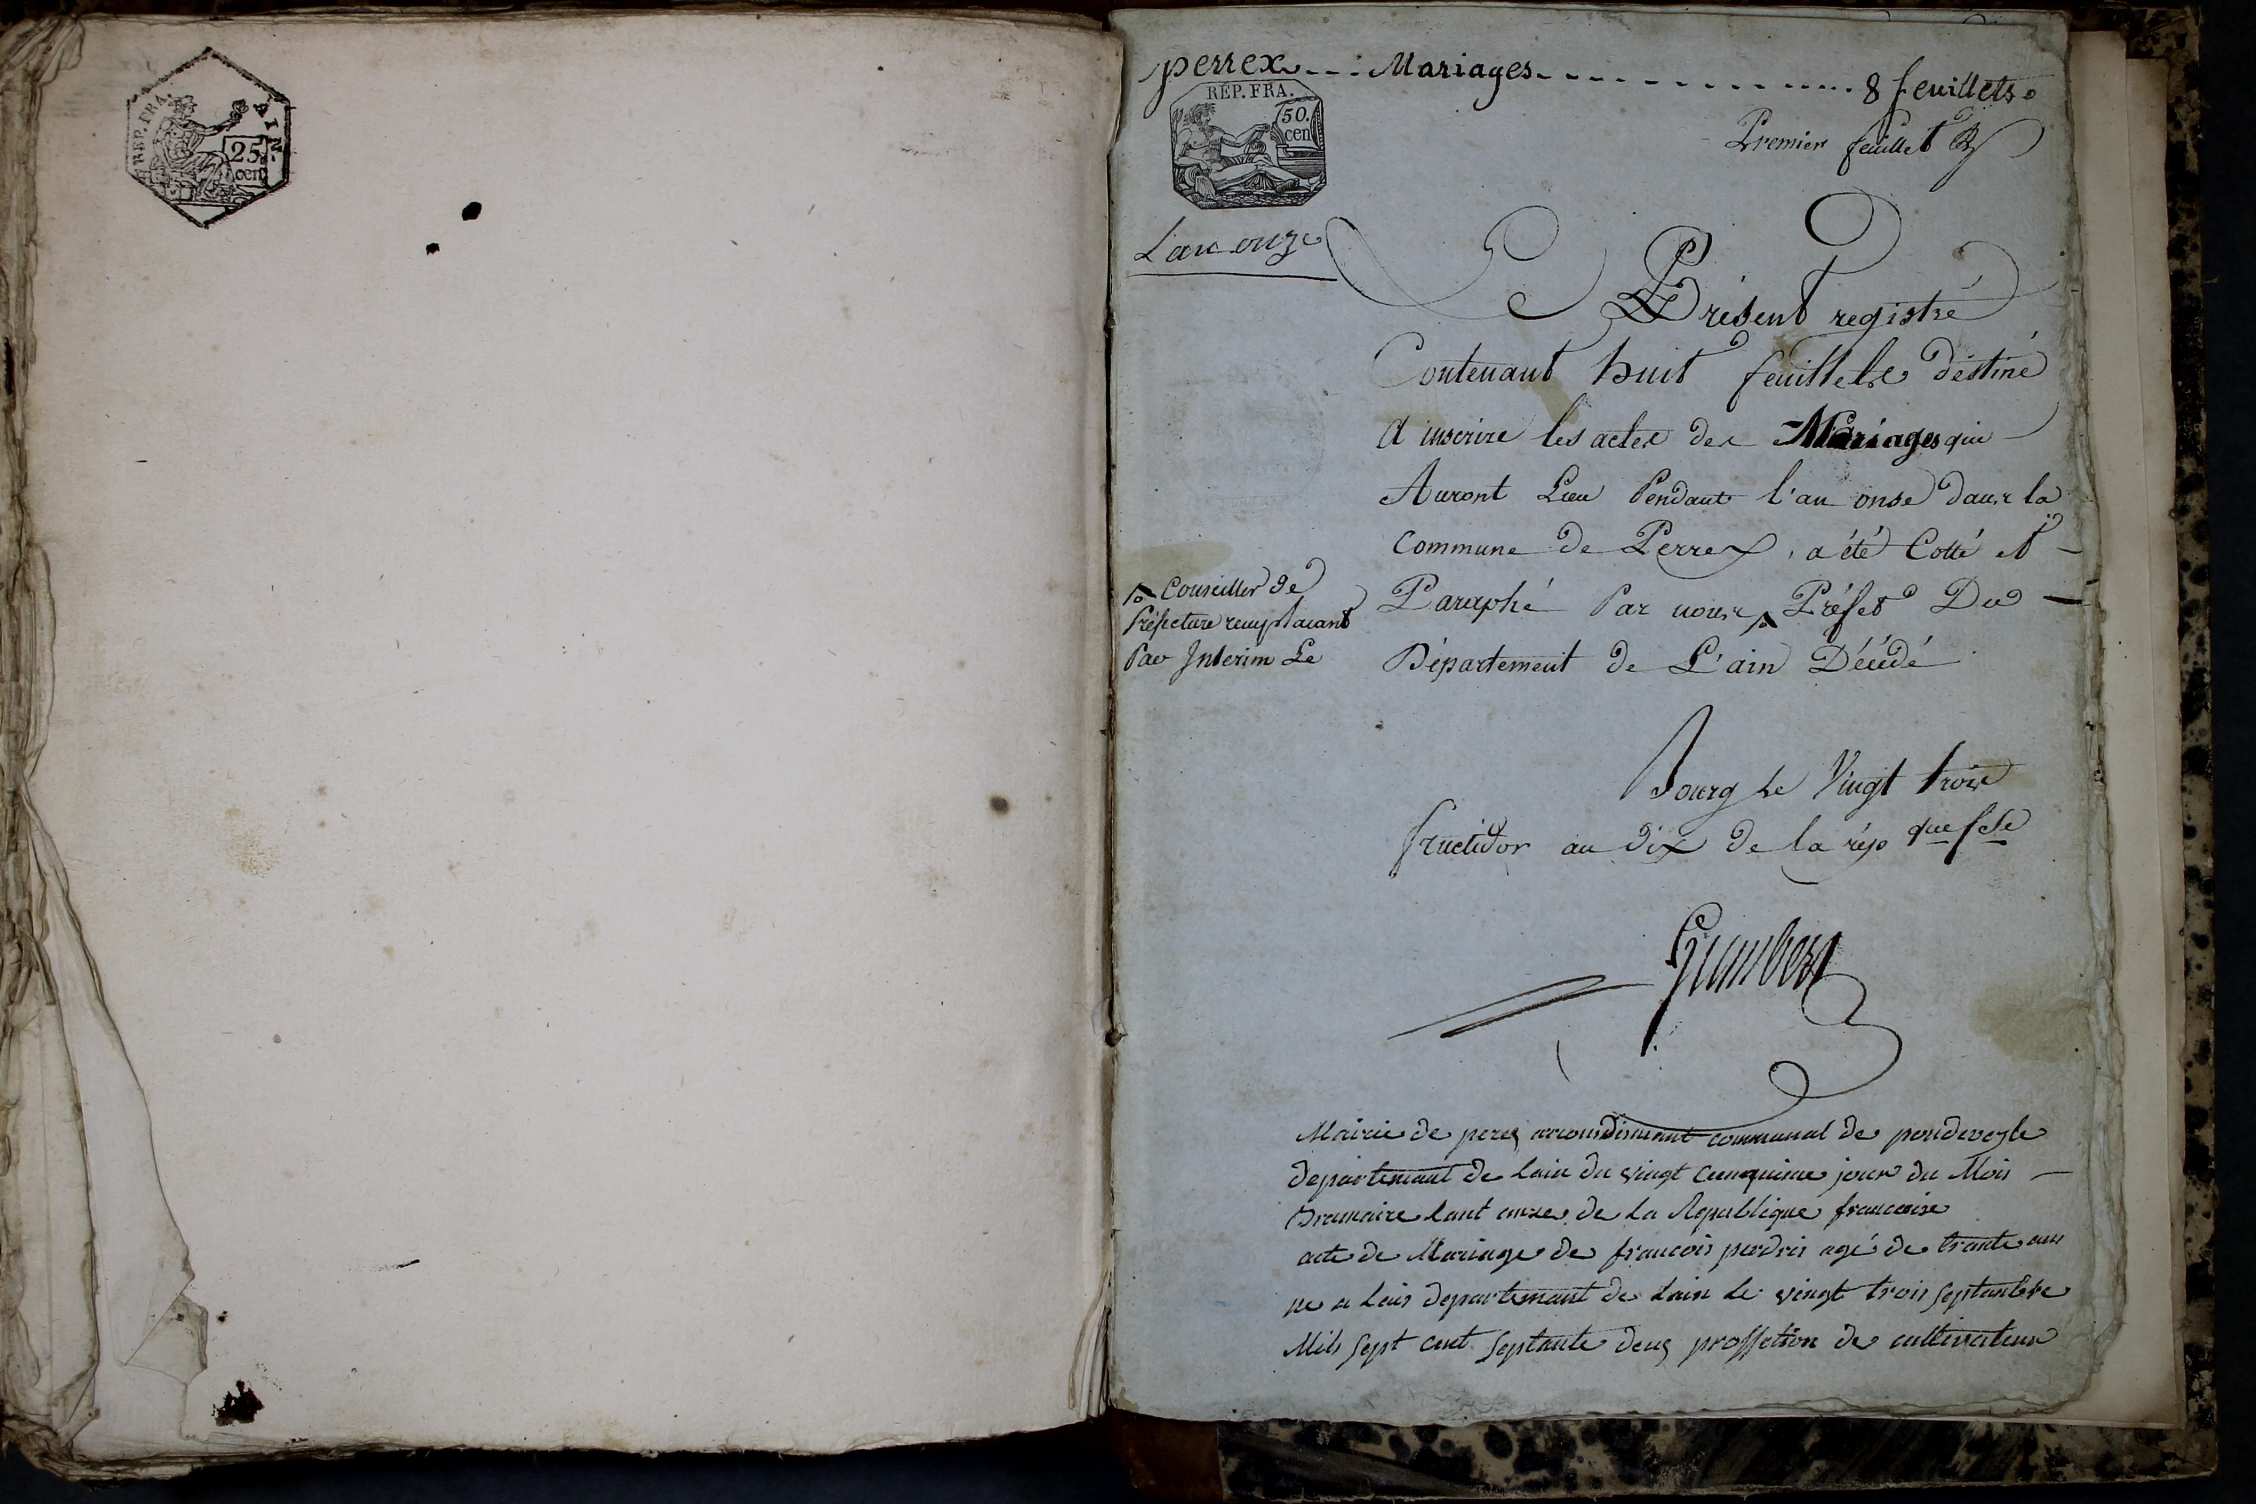 REP. FRA.
AIN.
25.
cen
perrex --- Mariages ------------ 8 feuillets.
REP. FRA.
50.
cen
Premier feuillet
L'an onze
Présent registre
Contenant huit feuillets déstiné
A inscrire les actes des Mariages qui
Auront Lieu Pendant l'an onse dans la
Commune de Perrex, a été Cotté et
Paraphé Par nous Préfet Du
Département de L'ain Décédé
Conseiller de
Préfecture remplacant
Par Interim Le
Bourg Le Vingt trois
fructidor an dix de la rép que fse
Mairie de perex arrondisimant communal de pondeveyle
departemant de lain du vingt cunquime jour du Mois
Brumaire lant onze de la Republique francaise
acte de Mariage de francois perdrix agé de trante ans
ne a Leis departemant de lain le vingt trois septanbre
Mils sept cent septante deux proffetion de cultivateur